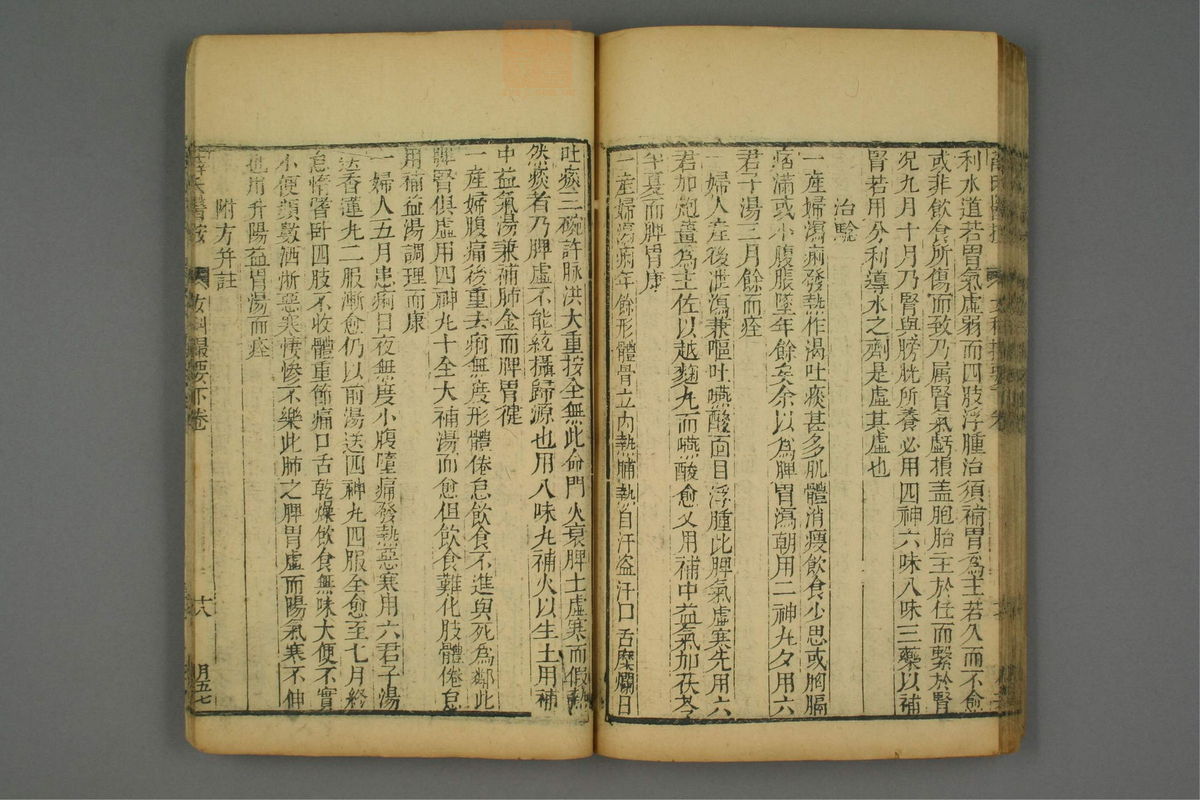 利水道若胃氣虛弱而四肢浮腫治須補胃為主若久而不愈
或非飲食所傷而致乃属腎氣虧損盖胞胎主於任而繫於腎
况九月十月乃腎與膀胱所養必用四神六味八味三藥以補
腎若用分利導水之劑是虛其虛也
治驗
一產婦瀉痢發熱作渴吐痰甚多肌體消瘦飲食少思或胸膈
痞滿或小腹脹墜年餘矣余以為脾胃瀉朝用二神丸夕用六
君子湯三月餘而痊
一婦人產後泄瀉兼嘔吐嚥酸面目浮腫此脾氣虛寒先用六
君加炮薑為主佐以越麹丸而嚥酸愈又用補中益氣加茯苓
半夏而脾胃康
一產婦瀉痢年餘形體骨立内熱晡熱自汗盗汗口舌糜爛日
吐痰三碗許脉洪大重按全無此命門火衰脾土虛寒而假熱
然痰者乃脾虛不能統攝歸源也用八味丸補火以生土用補
中益氣湯兼補肺金而脾胃健
一產婦腹痛後重去痢無度形體倦怠飲食不進與死為鄰此
脾腎俱虛用四神丸十全大補湯而愈但飲食難化肢體倦怠
用補益湯調理而康
一婦人五月患痢日夜無度小腹墜痛發熱惡寒用六君子湯
送香蓮丸二服漸愈仍以前湯送四神丸四服全愈至七月終
怠惰嗜卧四肢不收體重節痛口舌乾燥飲食無味大便不實
小便頻數洒淅惡寒悽慘不樂此肺之脾胃虛而陽氣寒不伸
也用升陽益胃湯而痊
附方并註
薛氏醫按
女科撮要下卷
十八
月五七